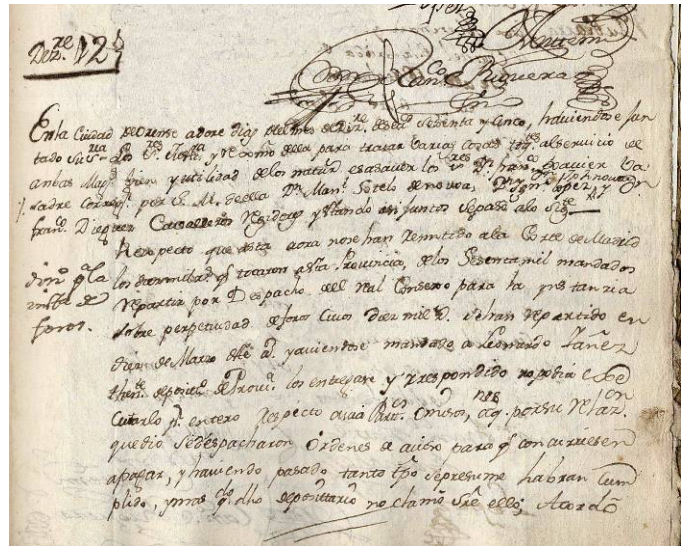 Dez.re 12
Fran.co Piguera
En la Ciudad de Orense a doze dias del mes de Diz.re de Setenta y Cinco, haviendose jun
tado Su S.ria Los S.res Just.a y rex.mo della para tratar varias cosas toq.tes al servicio de
ambas Mag.es bien y utilidad de los natur.s esasaver los S.res D.n Fran.co Xavier Ba
ladre Correx.or por S. M. de ella D.n Man.l Sotelo de novoa, D.n Ign.o Lopez y D.n
fran.co Dieguez Cavalleros Rexidores y estando asi juntos se paso a lo sig.te
Respecto que asta aora no se han Remitido a la Corte de Madrid
los diez mil r.s q.e tocaron a esta Provincia, de los Sesenta mil mandados
repartir por Despacho del Real Consexo para la ynstancia
sobre perpetuidad de foros Cuios diez mil r.s se han repartido en
diez de Marzo de este a.o y aviendose mandado a Leonardo Yañez
then.te deposit.o de Prov.a los entregare y respondido no podia exe
cutarlo p.r entero Respecto omisos, a q.e por su relaz.on
que dio Se despacharon Ordenes de aviso para q.e concurriesen
apagar, y haviendo pasado tanto tpõ se presume habran Cum
plido, y mas q.do dho depositario no clamo sre ello; Acordó
din.o p.a la
instt.a de
foros.